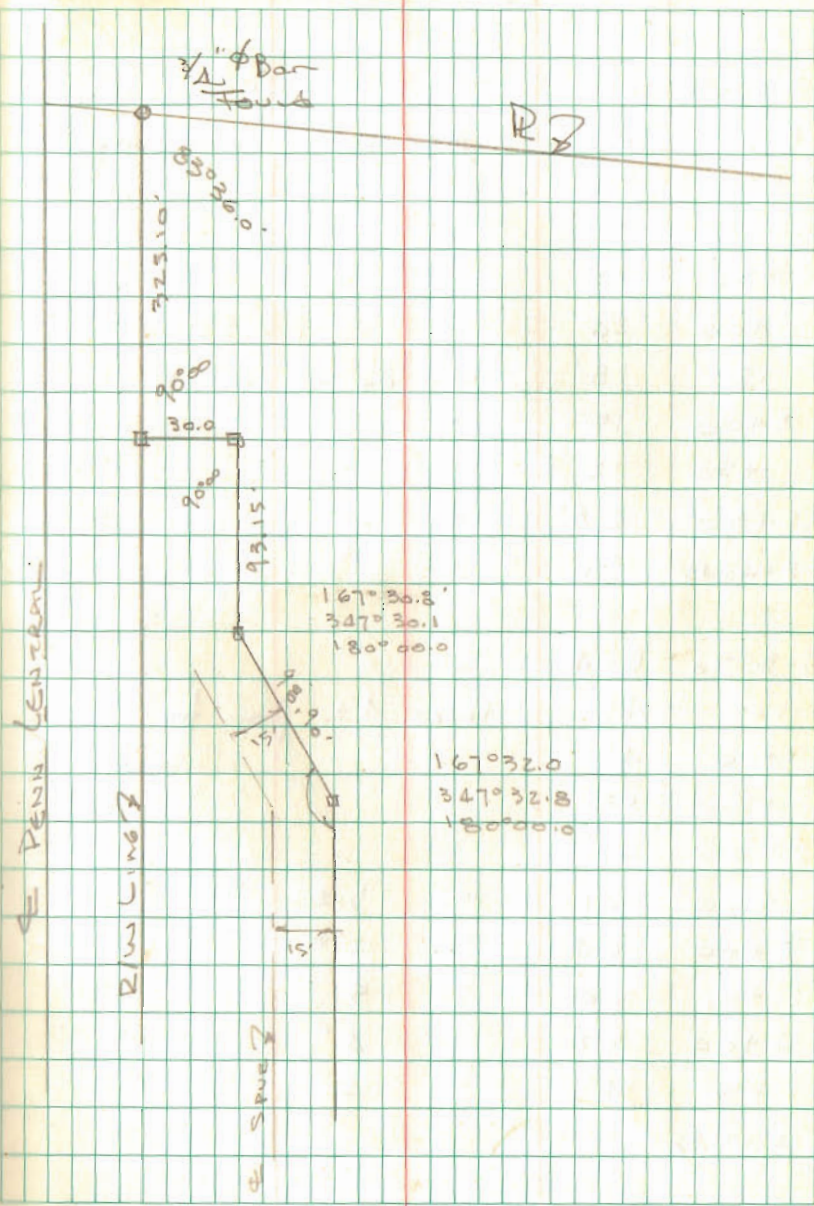 3/4" ϕ Bar
Found
83°36.0'
323.10'
90°00
30.0
90°00
93.15'
167°30.8'
347°30.1
180°00.0
15'
167°32.0
347°32.8
180°00.0
15'
℄ PENN CENTRAL
R/W LINE
℄ SPUR